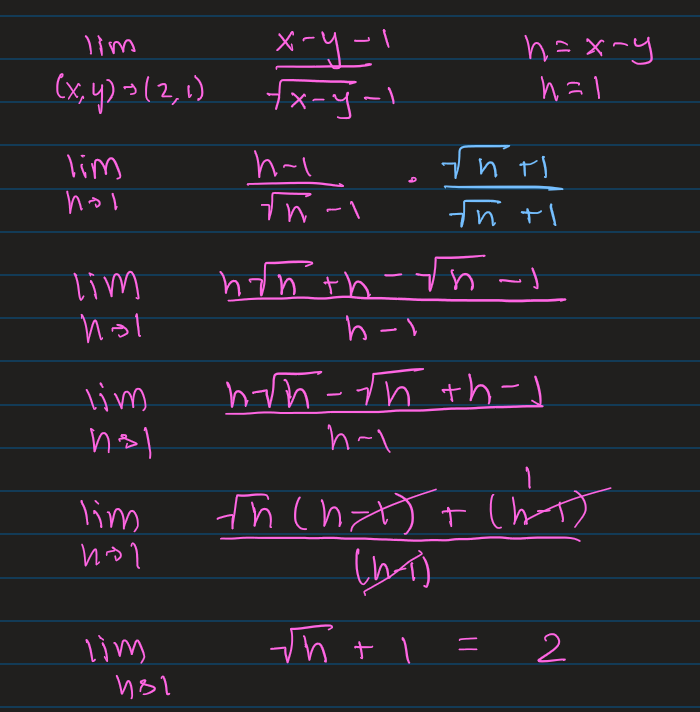 lim (x,y)→(2,1) (x-y-1)/(√(x-y)-1) h = x-y
h = 1
lim h→1 (h-1)/(√h-1) · (√h+1)/(√h+1)
lim h→1 (h√h+h-√h-1)/(h-1)
lim h→1 (h√h-√h+h-1)/(h-1)
lim h→1 (√h(h-1)+(h-1))/(h-1) 1
lim h→1 √h+1 = 2